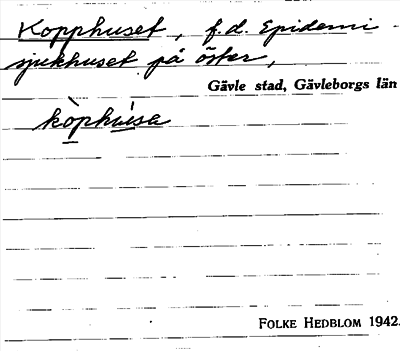 Kopphuset, f.d. Epidemi
sjukhuset på öster,
Gävle stad, Gävleborgs län
kòphúsa
FOLKE HEDBLOM 1942.